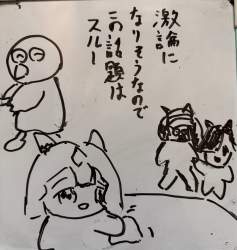 激論に
なりそうなので
この話題は
スルー